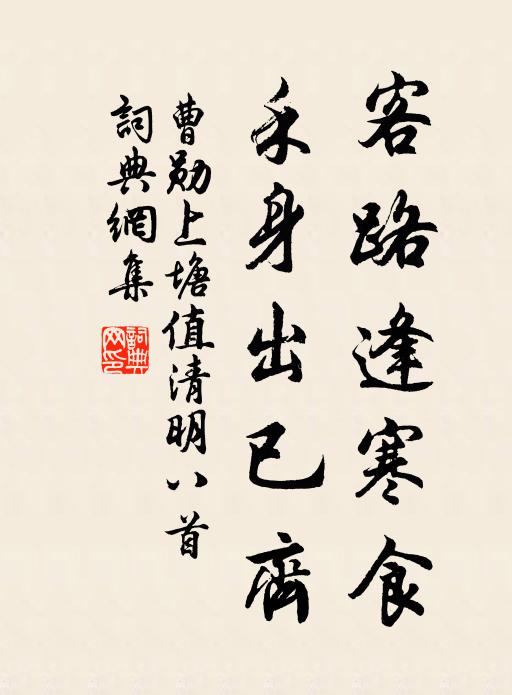 客路逢寒食
禾身出已齊
曹勛上塘值清明八首
詞典網集
詞典網印